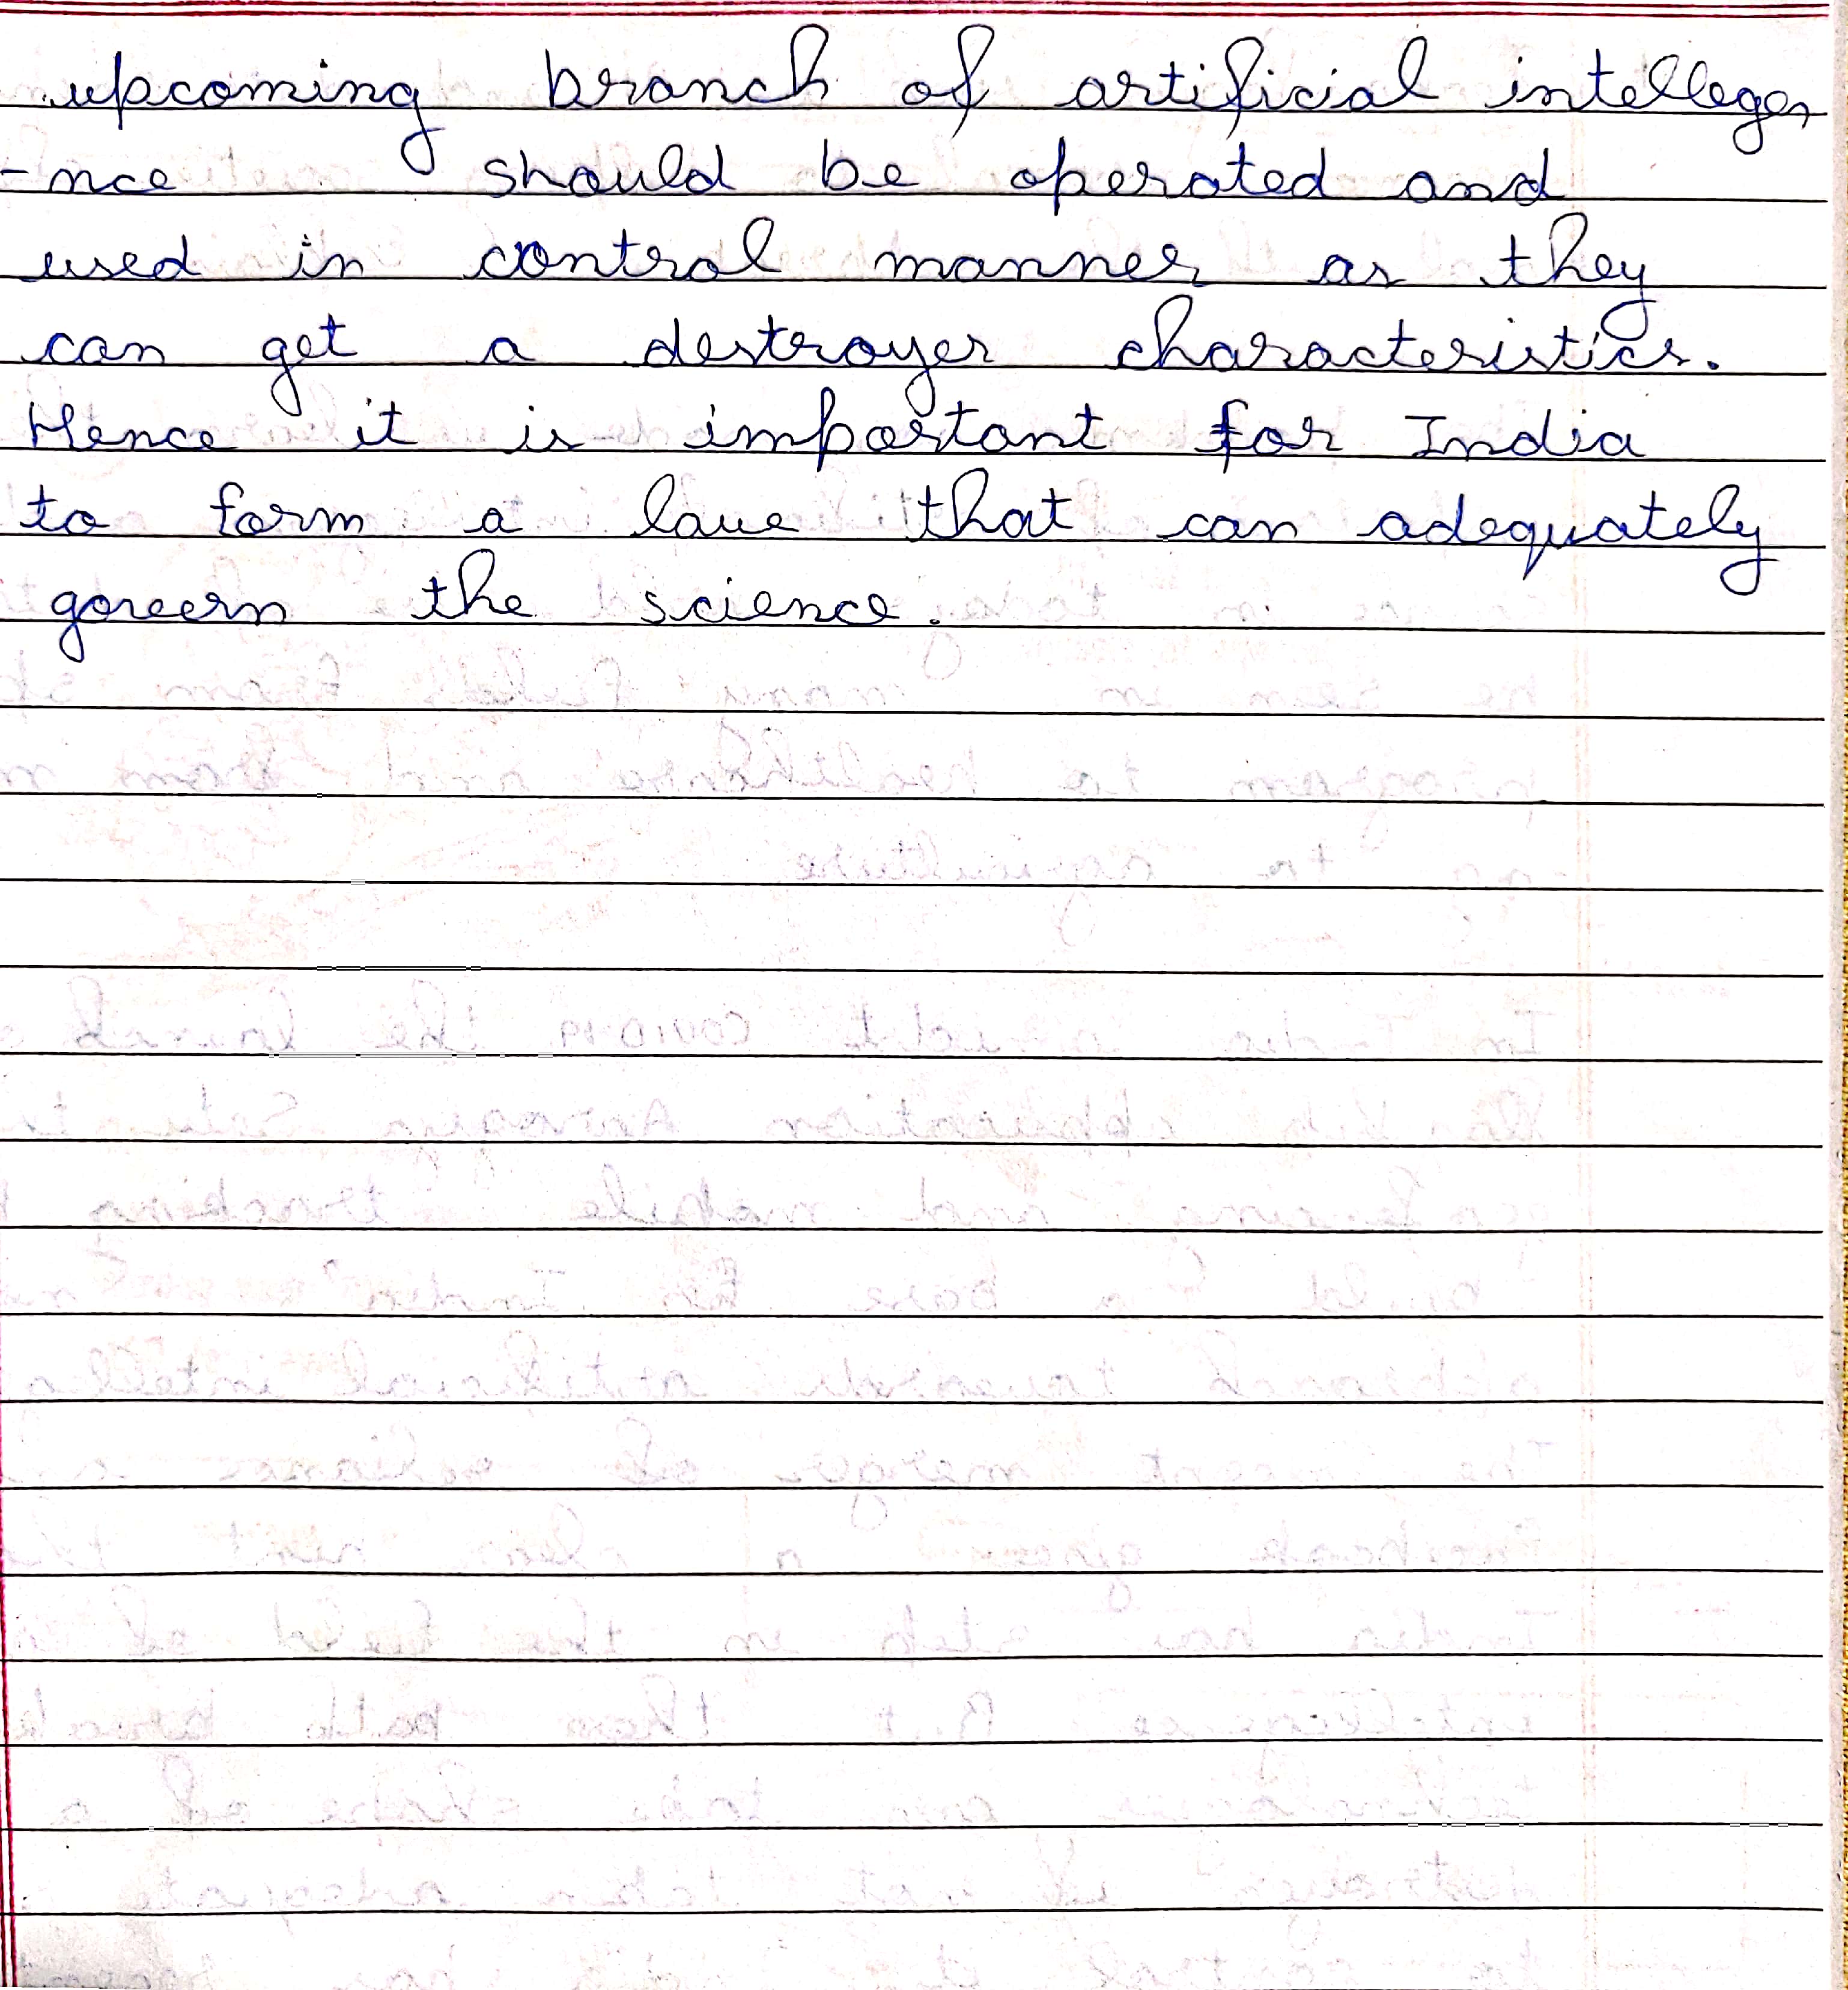 upcoming branch of artificial intellegen
-nce should be operated and
used in control manner as they
can get a destroyer characteristics.
Hence it is important for India
to form a law that can adequately
govern the science.